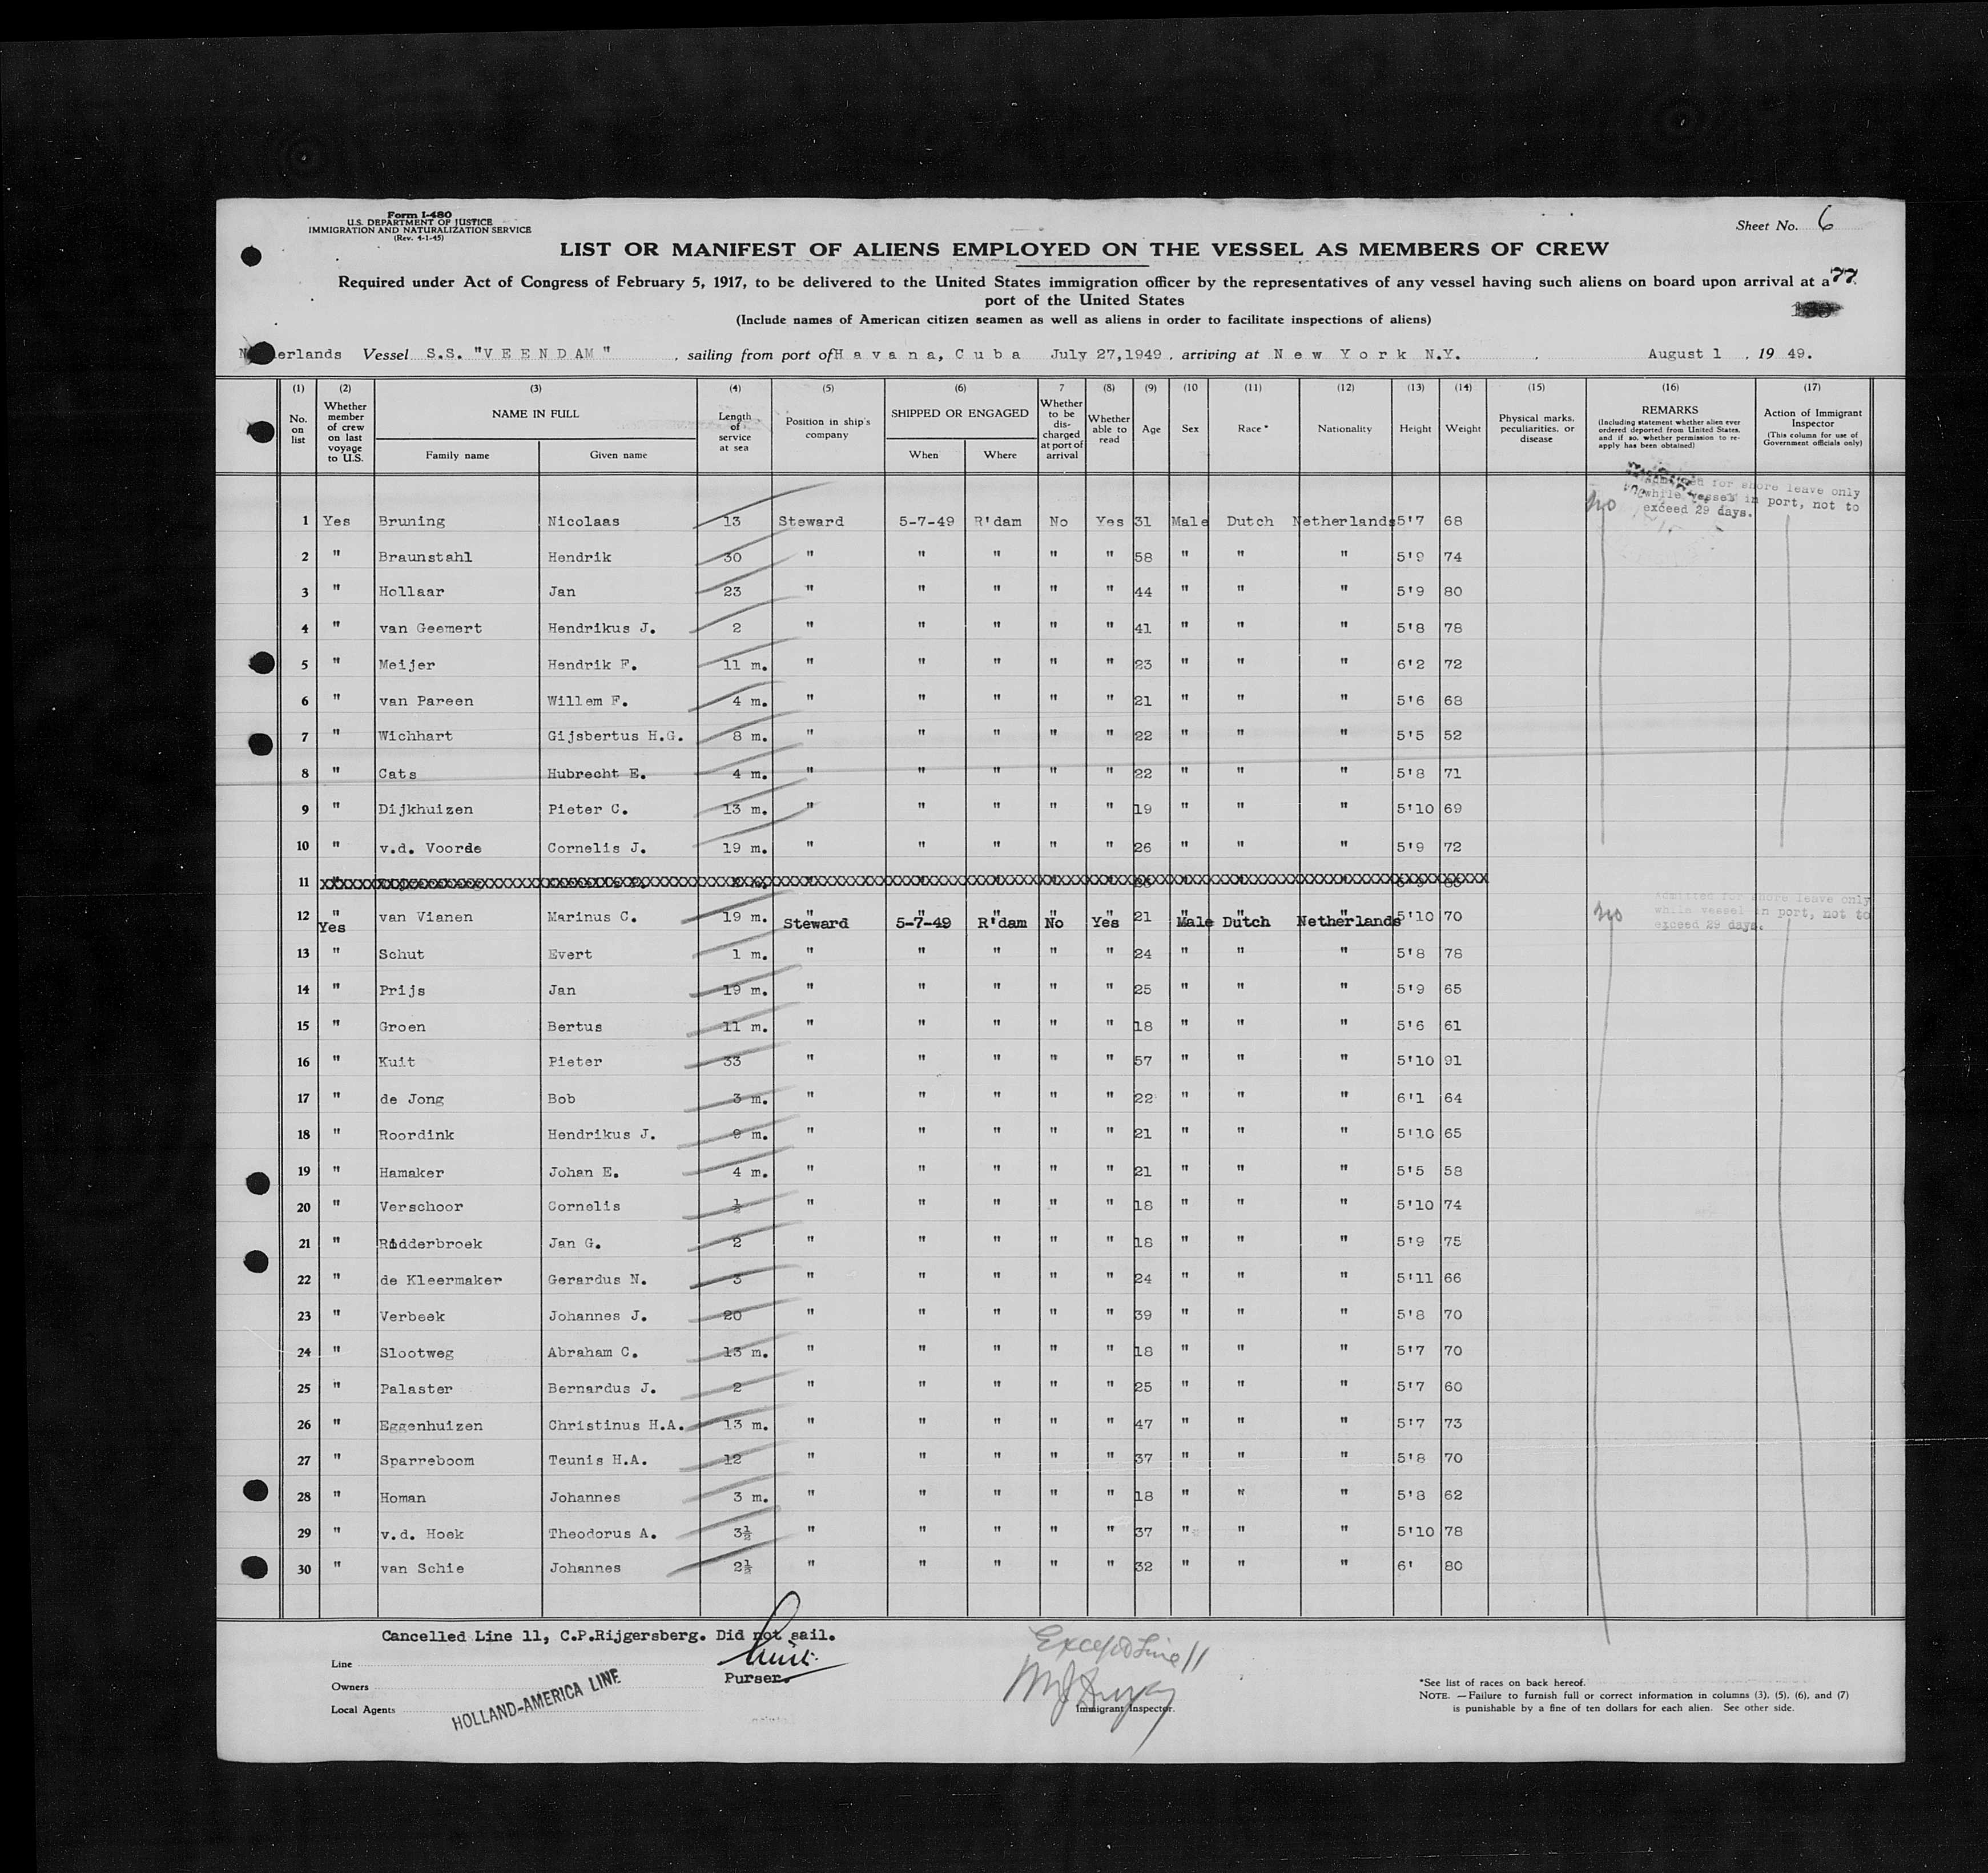 Form I-480
U.S. DEPARTMENT OF JUSTICE
IMMIGRATION AND NATURALIZATION SERVICE
(Rev. 4-1-45)
Sheet No. 6
LIST OR MANIFEST OF ALIENS EMPLOYED ON THE VESSEL AS MEMBERS OF CREW
Required under Act of Congress of February 5, 1917, to be delivered to the United States immigration officer by the representatives of any vessel having such aliens on board upon arrival at a 77
port of the United States
(Include names of American citizen seamen as well as aliens in order to facilitate inspections of aliens)
erlands Vessel S.S. "VEENDAM", sailing from port of Havana, Cuba July 27, 1949, arriving at New York N.Y. August 1, 19 49.
(1) (2) (3) (4) (5) (6) 7 (8) (9) (10 (11) (12) (13) (14) (15) (16) (17)
No. on list
Whether member of crew on last voyage to U.S.
NAME IN FULL
Family name
Given name
Length of service at sea
Position in ship's company
SHIPPED OR ENGAGED
When
Where
Whether to be discharged at port of arrival
Whether able to read
Age
Sex
Race *
Nationality
Height
Weight
Physical marks, peculiarities, or disease
REMARKS
(Including statement whether alien ever ordered deported from United States, and if so, whether permission to re-apply has been obtained)
Action of Immigrant Inspector
(This column for use of Government officials only)
Admitted for shore leave only
while vessel in port, not to
exceed 29 days.
1 Yes Bruning Nicolaas 13 Steward 5-7-49 R'dam No Yes 31 Male Dutch Netherlands 5'7 68 no
2 " Braunstahl Hendrik 30 " " " " " 58 " " " 5'9 74
3 " Hollaar Jan 23 " " " " " 44 " " " 5'9 80
4 " van Geemert Hendrikus J. 2 " " " " " 41 " " " 5'8 78
5 " Meijer Hendrik F. 11 m. " " " " " 23 " " " 6'2 72
6 " van Pareen Willem F. 4 m. " " " " " 21 " " " 5'6 68
7 " Wichhart Gijsbertus H.G. 8 m. " " " " " 22 " " " 5'5 52
8 " Cats Hubrecht E. 4 m. " " " " " 22 " " " 5'8 71
9 " Dijkhuizen Pieter C. 13 m. " " " " " 19 " " " 5'10 69
10 " v.d. Voorde Cornelis J. 19 m. " " " " " 26 " " " 5'9 72
11
12 " Yes van Vianen Marinus C. 19 m. " Steward " 5-7-49 " R'dam " No " Yes 21 " Male " Dutch " Netherlands 5'10 70 no
Admitted for shore leave only
while vessel in port, not to
exceed 29 days.
13 " Schut Evert 1 m. " " " " " 24 " " " 5'8 78
14 " Prijs Jan 19 m. " " " " " 25 " " " 5'9 65
15 " Groen Bertus 11 m. " " " " " 18 " " " 5'6 61
16 " Kuit Pieter 33 " " " " " 57 " " " 5'10 91
17 " de Jong Bob 3 m. " " " " " 22 " " " 6'1 64
18 " Roordink Hendrikus J. 9 m. " " " " " 21 " " " 5'10 65
19 " Hamaker Johan E. 4 m. " " " " " 21 " " " 5'5 58
20 " Verschoor Cornelis ½ " " " " " 18 " " " 5'10 74
21 " Ridderbroek Jan G. 2 " " " " " 18 " " " 5'9 75
22 " de Kleermaker Gerardus N. 3 " " " " " 24 " " " 5'11 66
23 " Verbeek Johannes J. 20 " " " " " 39 " " " 5'8 70
24 " Slootweg Abraham C. 13 m. " " " " " 18 " " " 5'7 70
25 " Palaster Bernardus J. 2 " " " " " 25 " " " 5'7 60
26 " Eggenhuizen Christinus H.A. 13 m. " " " " " 47 " " " 5'7 73
27 " Sparreboom Teunis H.A. 12 " " " " " 37 " " " 5'8 70
28 " Homan Johannes 3 m. " " " " " 18 " " " 5'8 62
29 " v.d. Hoek Theodorus A. 3½ " " " " " 37 " " " 5'10 78
30 " van Schie Johannes 2½ " " " " " 32 " " " 6' 80
Cancelled Line 11, C.P.Rijgersberg. Did not sail.
Except Line 11
Line
Purser.
Owners
HOLLAND-AMERICA LINE
Local Agents
Immigrant Inspector.
*See list of races on back hereof.
NOTE. —Failure to furnish full or correct information in columns (3), (5), (6), and (7)
is punishable by a fine of ten dollars for each alien. See other side.